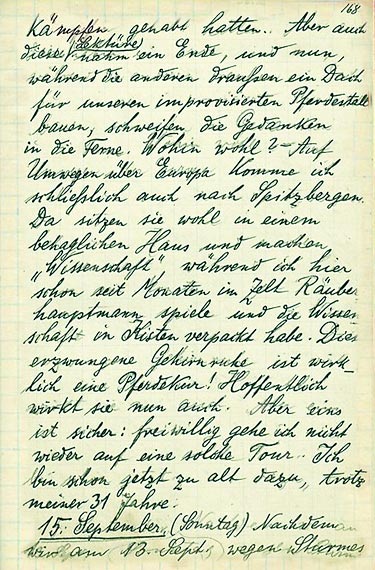 168
Kämpfen gehabt hatten. Aber auch
diese Lektüre nahm ein Ende, und nun,
während die anderen draußen ein Dach
für unseren improvisierten Pferdestall
bauen, schweifen die Gedanken
in die Ferne. Wohin wohl? – Auf
Umwegen über Europa komme ich
schließlich auch nach Spitzbergen.
Da sitzen sie wohl in einem
behaglichen Haus und machen
„Wissenschaft" während ich hier
schon seit Monaten im Zelt Räuber
hauptmann spiele und die Wissen
schaft in Kisten verpackt habe. Diese
erzwungene Gehirnruhe ist wirk-
lich eine Pferdekur! Hoffentlich
wirkt sie nun auch. Aber eins
ist sicher: freiwillig gehe ich nicht
wieder auf eine solche Tour. Ich
bin schon jetzt zu alt dazu, trotz
meiner 31 Jahre.
15. September. (Sonntag) Nachdem
wir am 13. Sept. wegen Sturmes